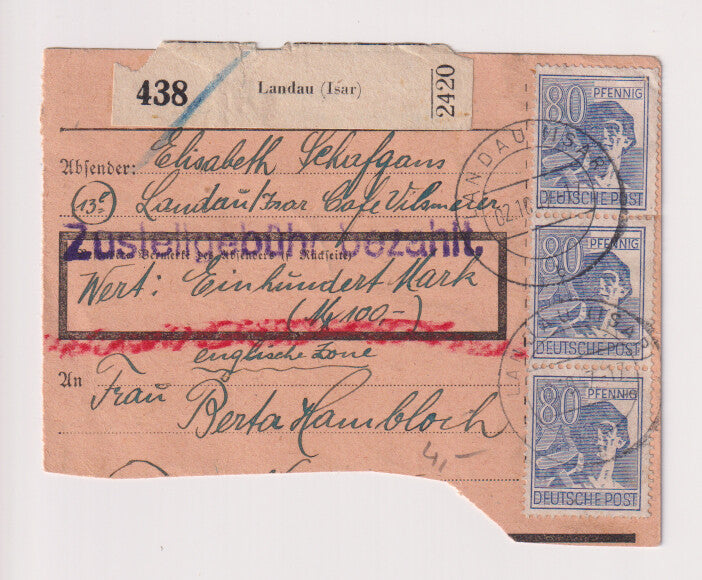 438
Landau (Isar)
2420
Absender: Elisabeth Schafgans
13b Landau/Isar Cafe Vilsmeier
Zustellgebühr bezahlt.
Vermerke des Absenders (f. Rückseite)
Wert: Einhundert Mark
(M 100-)
englische Zone
An Frau Berta Hambloch
4,-
80 PFENNIG
DEUTSCHE POST
80 PFENNIG
DEUTSCHE POST
80 PFENNIG
DEUTSCHE POST
LANDAU (ISAR)
02.10
LANDAU (ISAR)